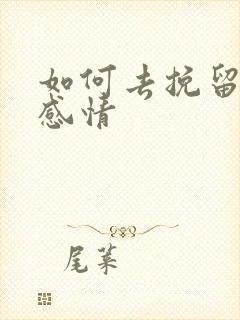 如何去挽留
感情
尾巢